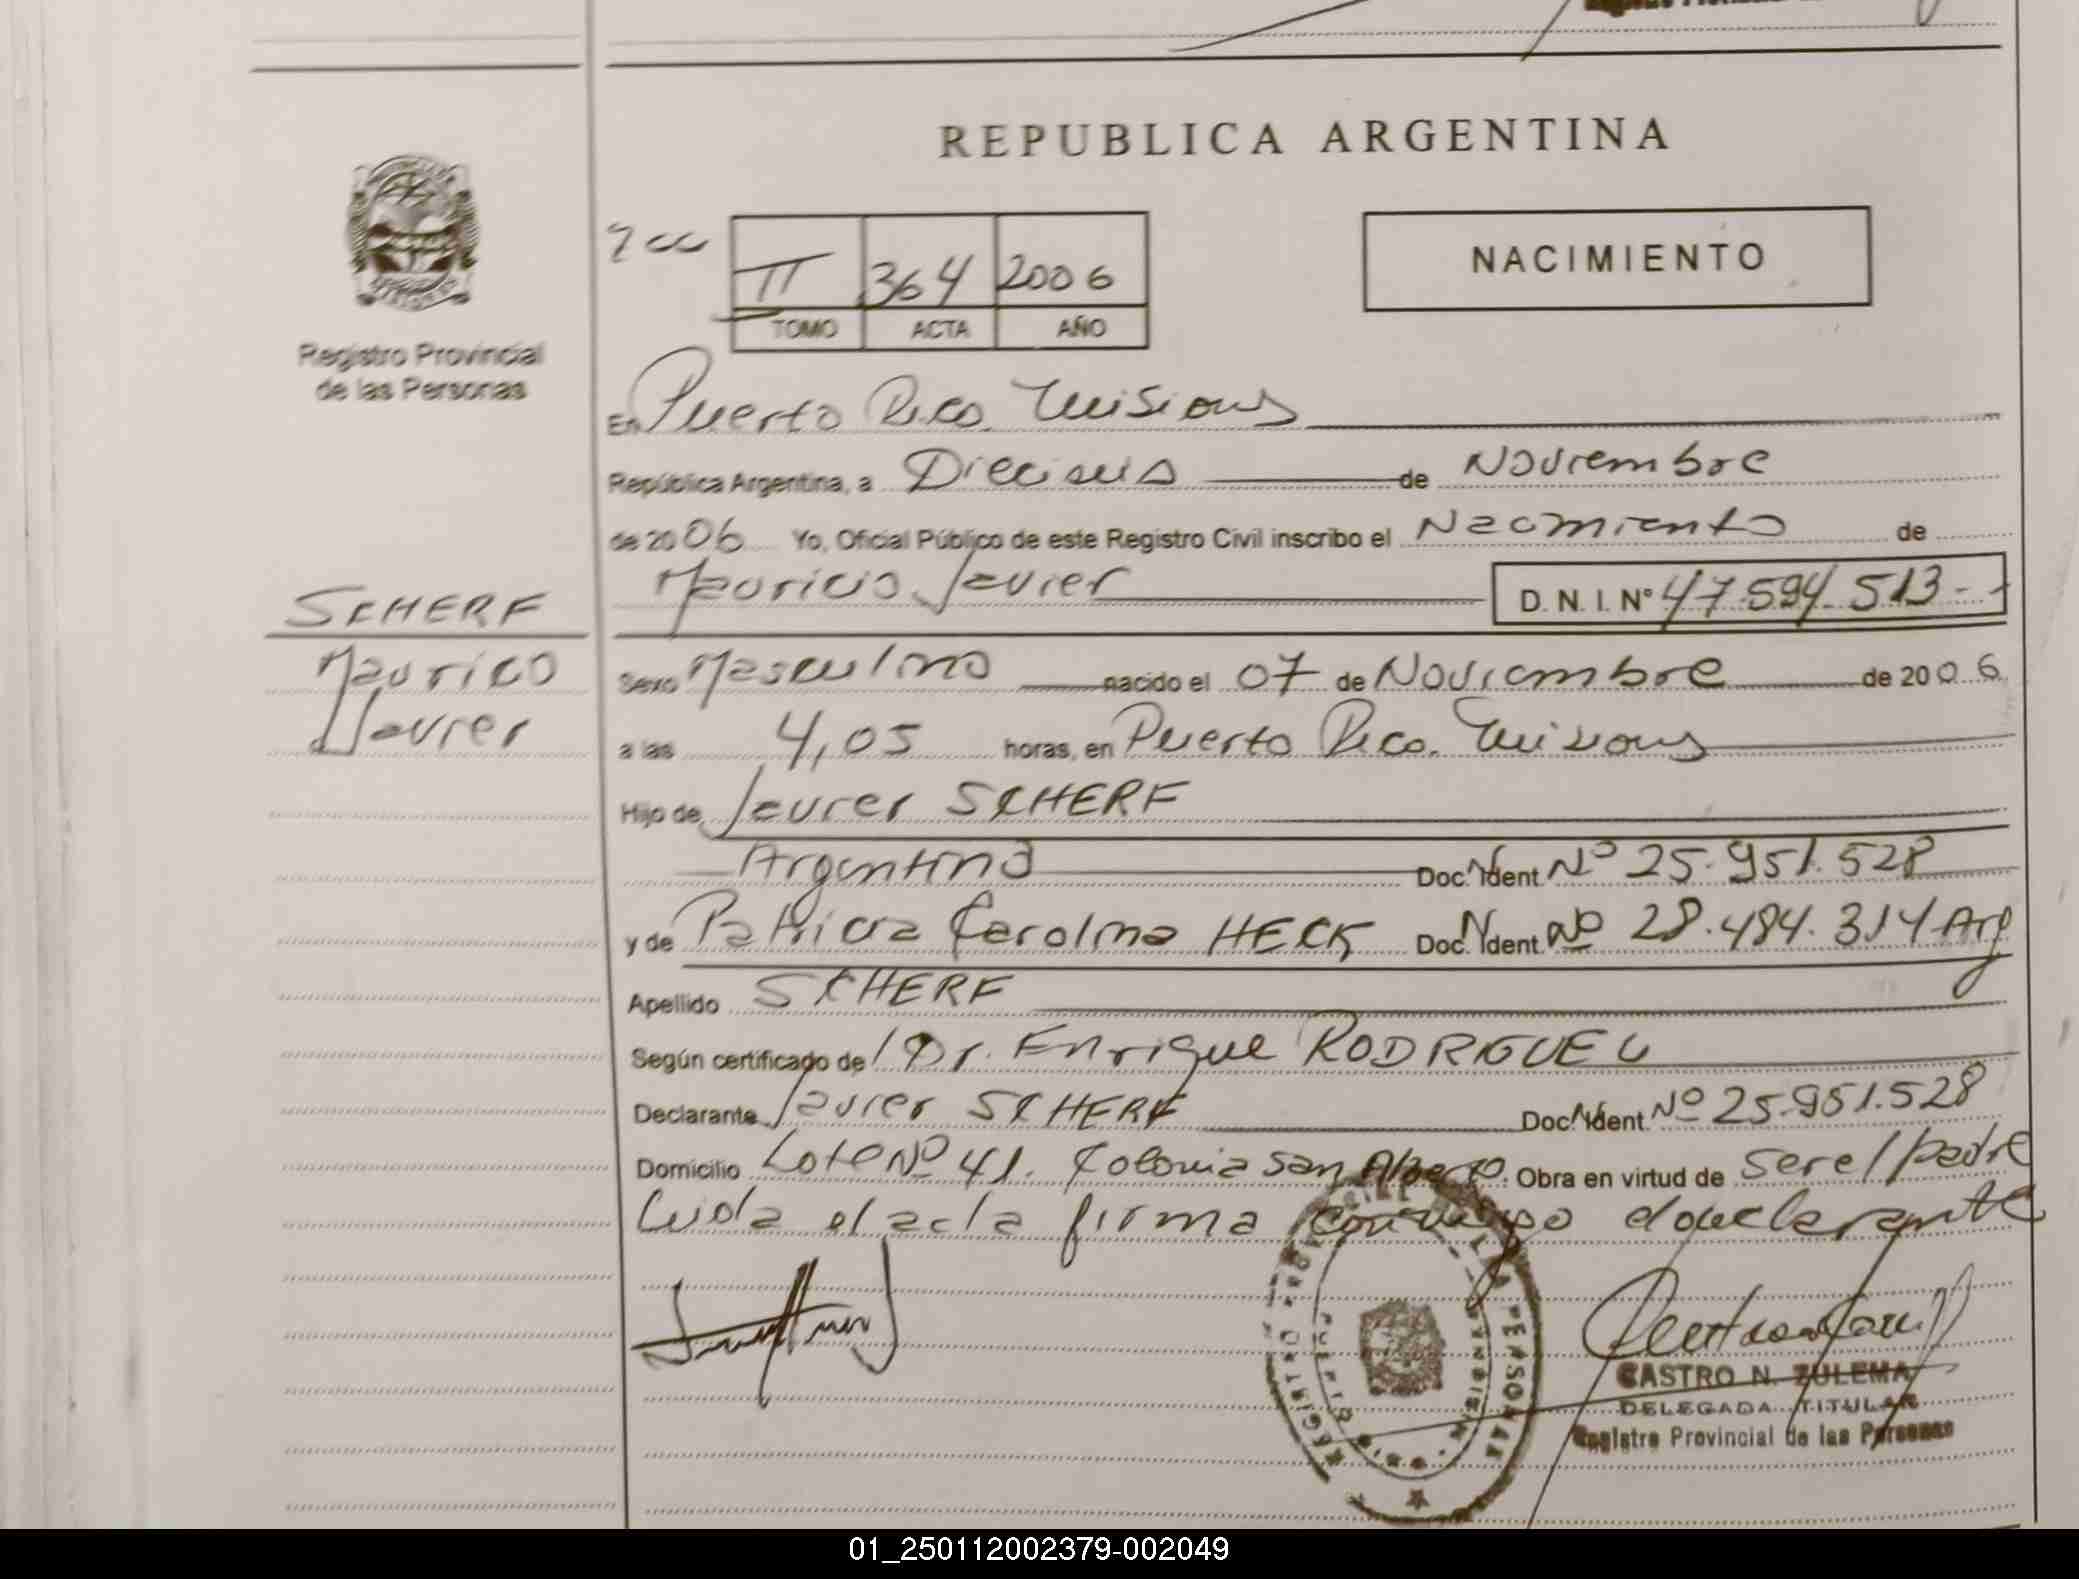 REPUBLICA ARGENTINA
NACIMIENTO
II 364 2006
TOMO ACTA AÑO
Registro Provincial
de las Personas
En Puerto Rico. Misiones
República Argentina, a Dieciseis de Noviembre
de 2006 Yo, Oficial Público de este Registro Civil inscribo el Nacimiento de
Mauricio Javier D. N. I. Nº 47.594.513-
SCHERF
Mauricio
Javier
Sexo Masculino nacido el 07 de Noviembre de 2006
a las 4,05 horas, en Puerto Rico. Misiones
Hijo de Javier SCHERF
Argentino Doc. Ident. Nº 25.951.528
y de Patricia Carolina HECK Doc. Ident. Nº 28.484.314 Arg
Apellido SCHERF
Según certificado de Dr. Enrique RODRIGUEZ
Declarante Javier SCHERF Doc. Ident. Nº 25.951.528
Domicilio Lote Nº 41. Colonia San Alberto. Obra en virtud de ser el padre
Leida el acta firma conmigo el declarante
CASTRO N. ZULEMA
DELEGADA TITULAR
Registro Provincial de las Personas
01_250112002379-002049